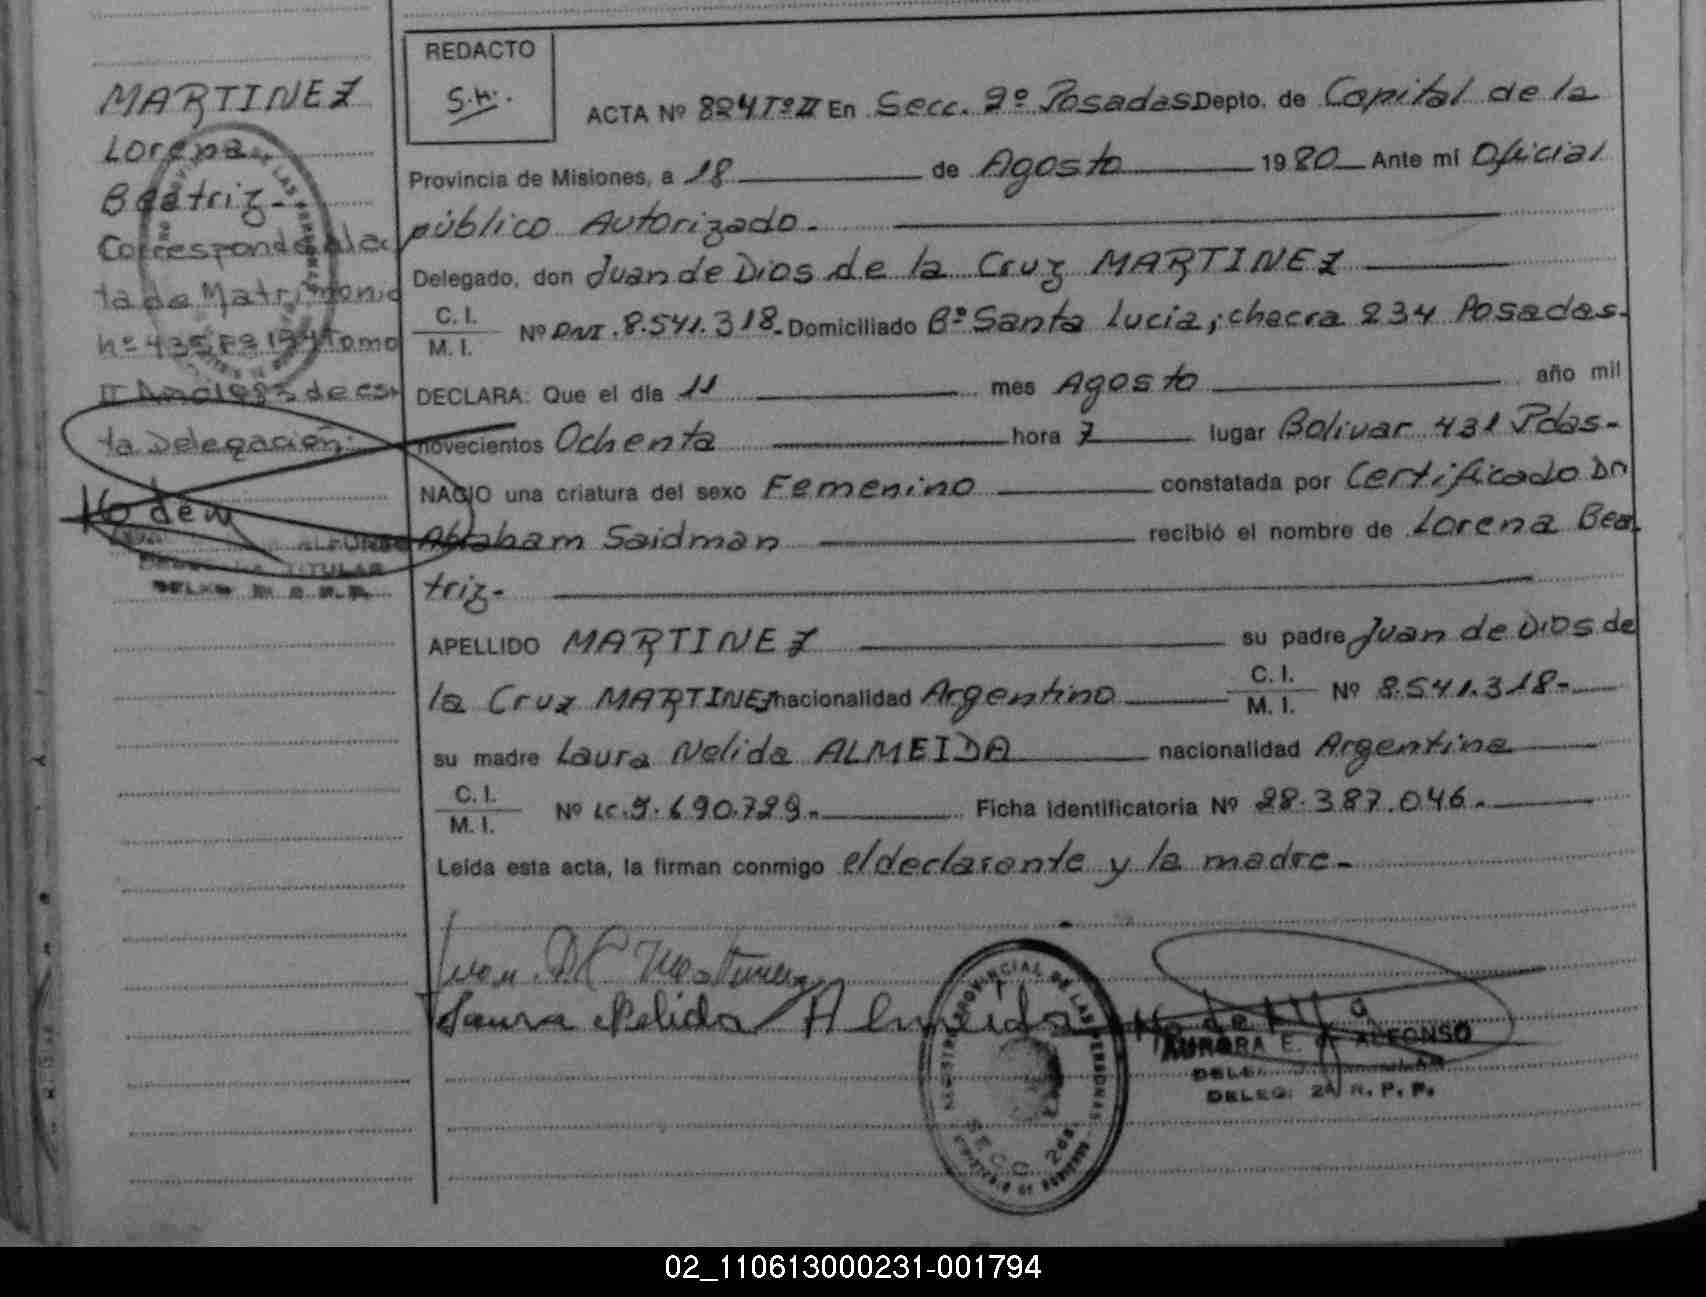 MARTINEZ
Lorena
Beatriz-
Corresponde al ac
ta de Matrimonio
nº 435 Fº 194 Tomo
II Año 1983 de es-
ta Delegación:
ALFONSO
TITULAR
REDACTO
S.H.
ACTA Nº 824 Tº II En Secc. 2º Posadas Depto. de Capital de la
Provincia de Misiones, a 18 de Agosto 1980 Ante mi Oficial
público Autorizado.
Delegado, don Juan de Dios de la Cruz MARTINEZ
C. I.
M. I. Nº DNI. 8.541.318. Domiciliado Bº Santa Lucia, checra 234 Posadas.
DECLARA: Que el día 11 mes Agosto año mil
novecientos Ochenta hora 7 lugar Bolivar 431 Pdas-
NACIO una criatura del sexo Femenino constatada por Certificado Dr
Abraham Saidman recibió el nombre de Lorena Bea
triz-
APELLIDO MARTINEZ su padre Juan de Dios de
la Cruz MARTINEZ nacionalidad Argentino C. I.
M. I. Nº 8.541.318-
su madre Laura Nelida ALMEIDA nacionalidad Argentina
C. I.
M. I. Nº LC. 9.690.729- Ficha identificatoria Nº 28.387.046.
Leída esta acta, la firman conmigo el declarante y la madre-
Juan D C Martinez
Laura Nelida Almeida
REGISTRO PROVINCIAL DE LAS PERSONAS
SECC. 2da.
AURORA E. de ALFONSO
DELEG. 2ª R. P. P.
02_110613000231-001794